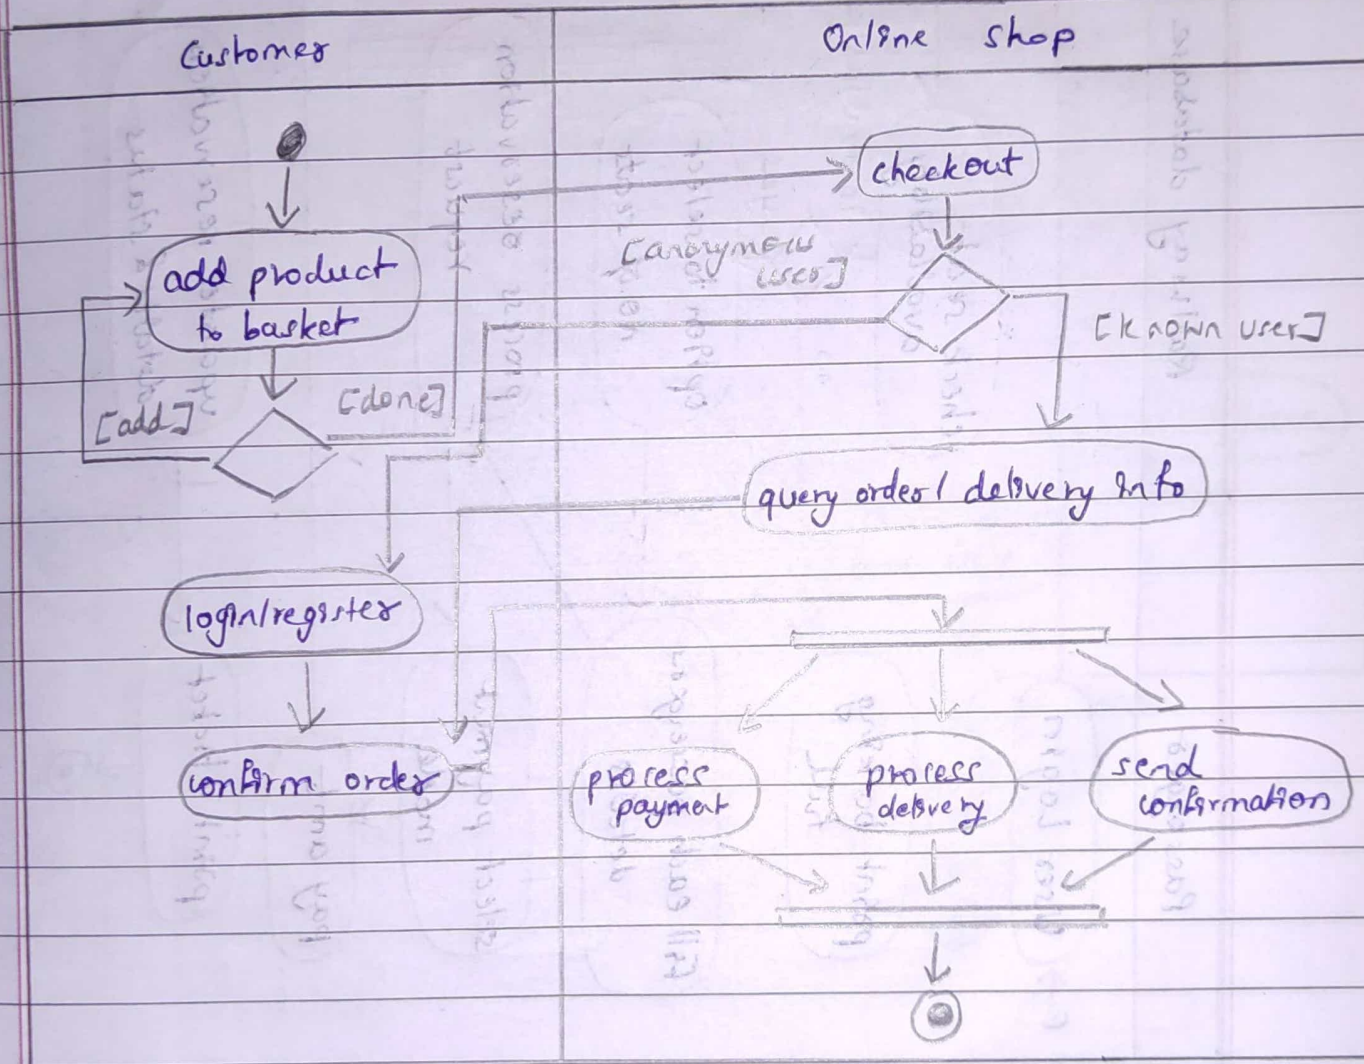 Customer
Online Shop
checkout
add product
to basket
[anonymous
user]
[known user]
[add]
[done]
query order/ delivery info
login/register
confirm order
process
payment
process
delivery
send
confirmation